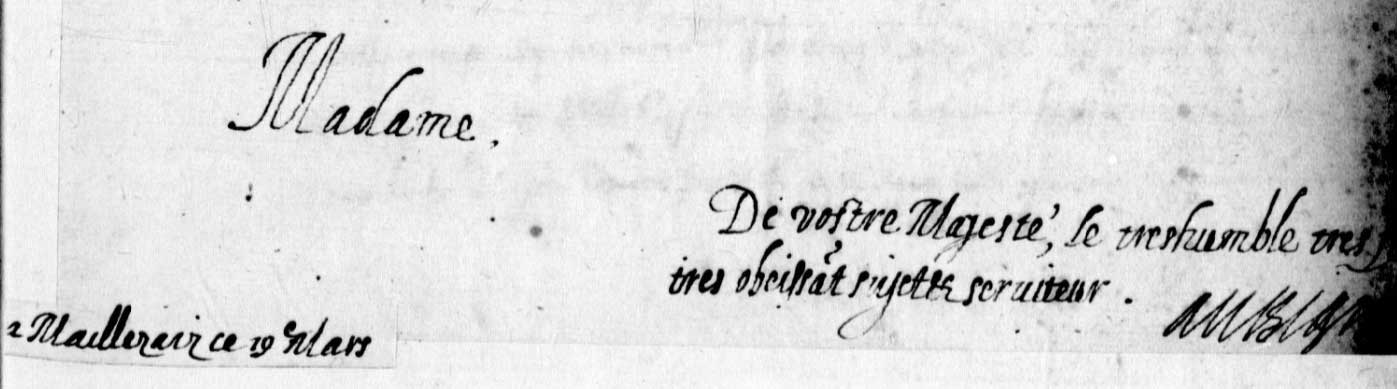 Madame,
De vostre Majesté, le treshumble tres
tres obeissāt sujet et serviteur.
a Maillezais ce 19e Mars